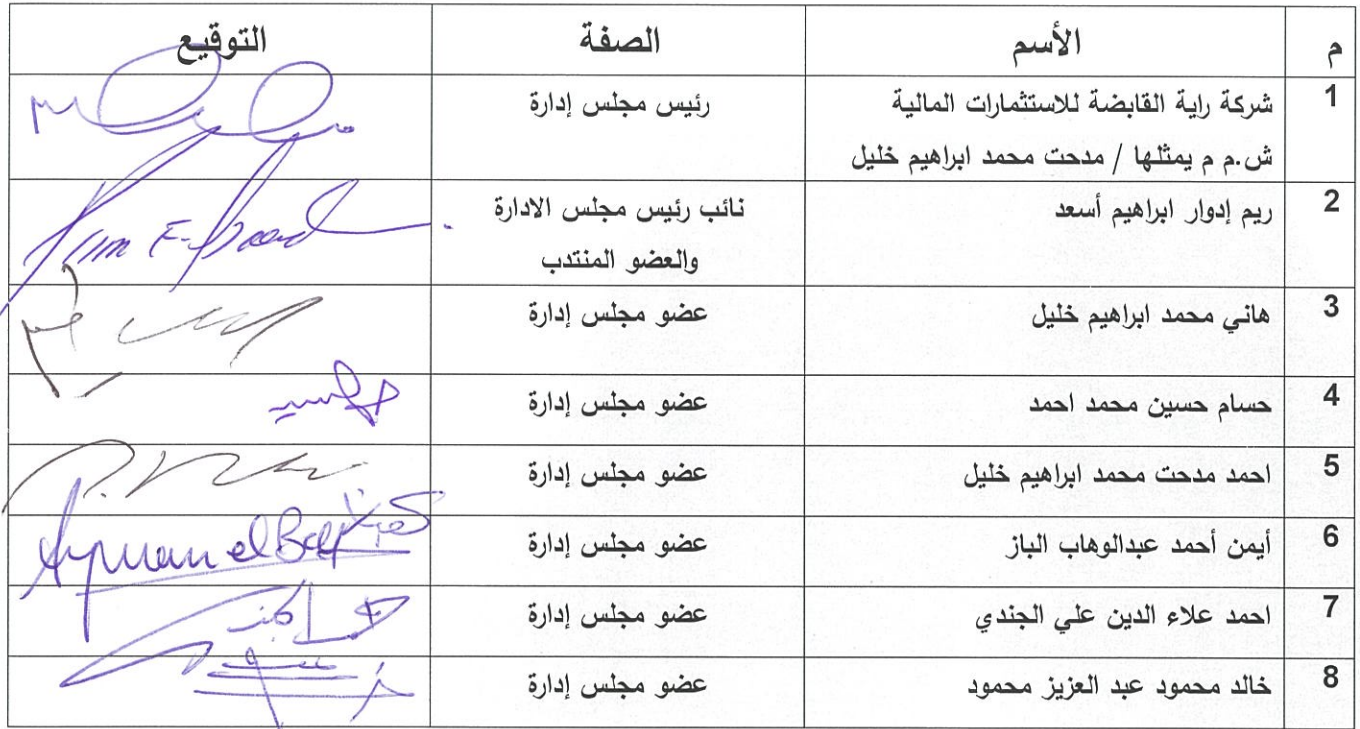 م الأسم الصفة التوقيع
1 شركة راية القابضة للاستثمارات المالية رئيس مجلس إدارة
ش.م م يمثلها / مدحت محمد ابراهيم خليل
2 ريم إدوار ابراهيم أسعد نائب رئيس مجلس الادارة
والعضو المنتدب
3 هاني محمد ابراهيم خليل عضو مجلس إدارة
4 حسام حسين محمد احمد عضو مجلس إدارة
5 احمد مدحت محمد ابراهيم خليل عضو مجلس إدارة
6 أيمن أحمد عبدالوهاب الباز عضو مجلس إدارة
7 احمد علاء الدين علي الجندي عضو مجلس إدارة
8 خالد محمود عبد العزيز محمود عضو مجلس إدارة